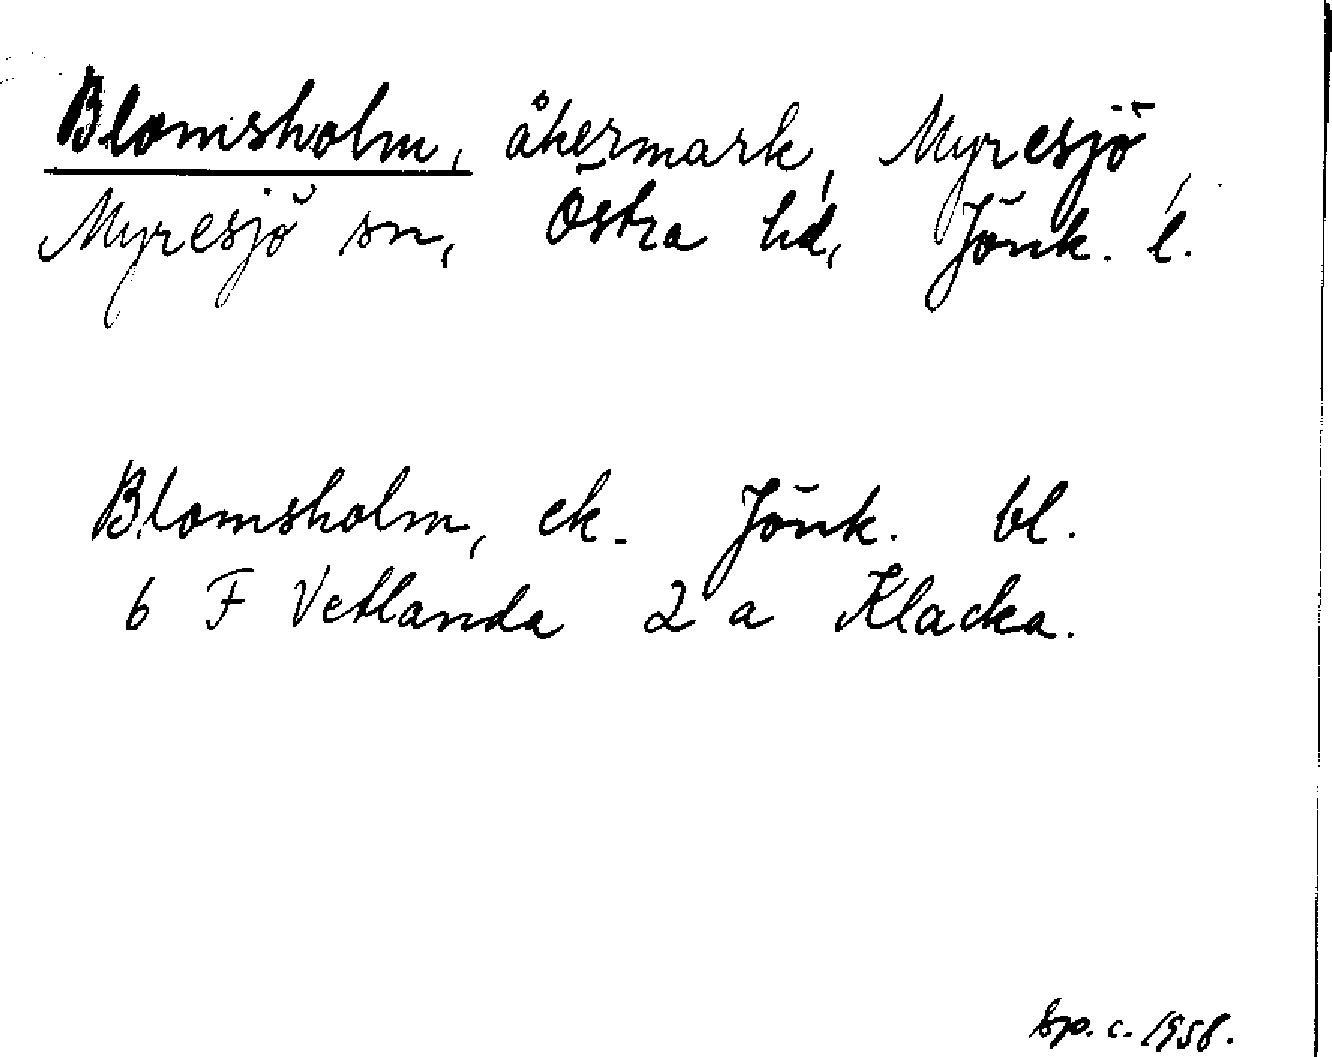 Blomsholm, åkermark, Myresjö,
Myresjö sn, Östra hd, Jönk. l.
Blomsholm, ek. Jönk. bl.
6 F Vetlanda 2 a Klacka.
Sp. c. 1958.